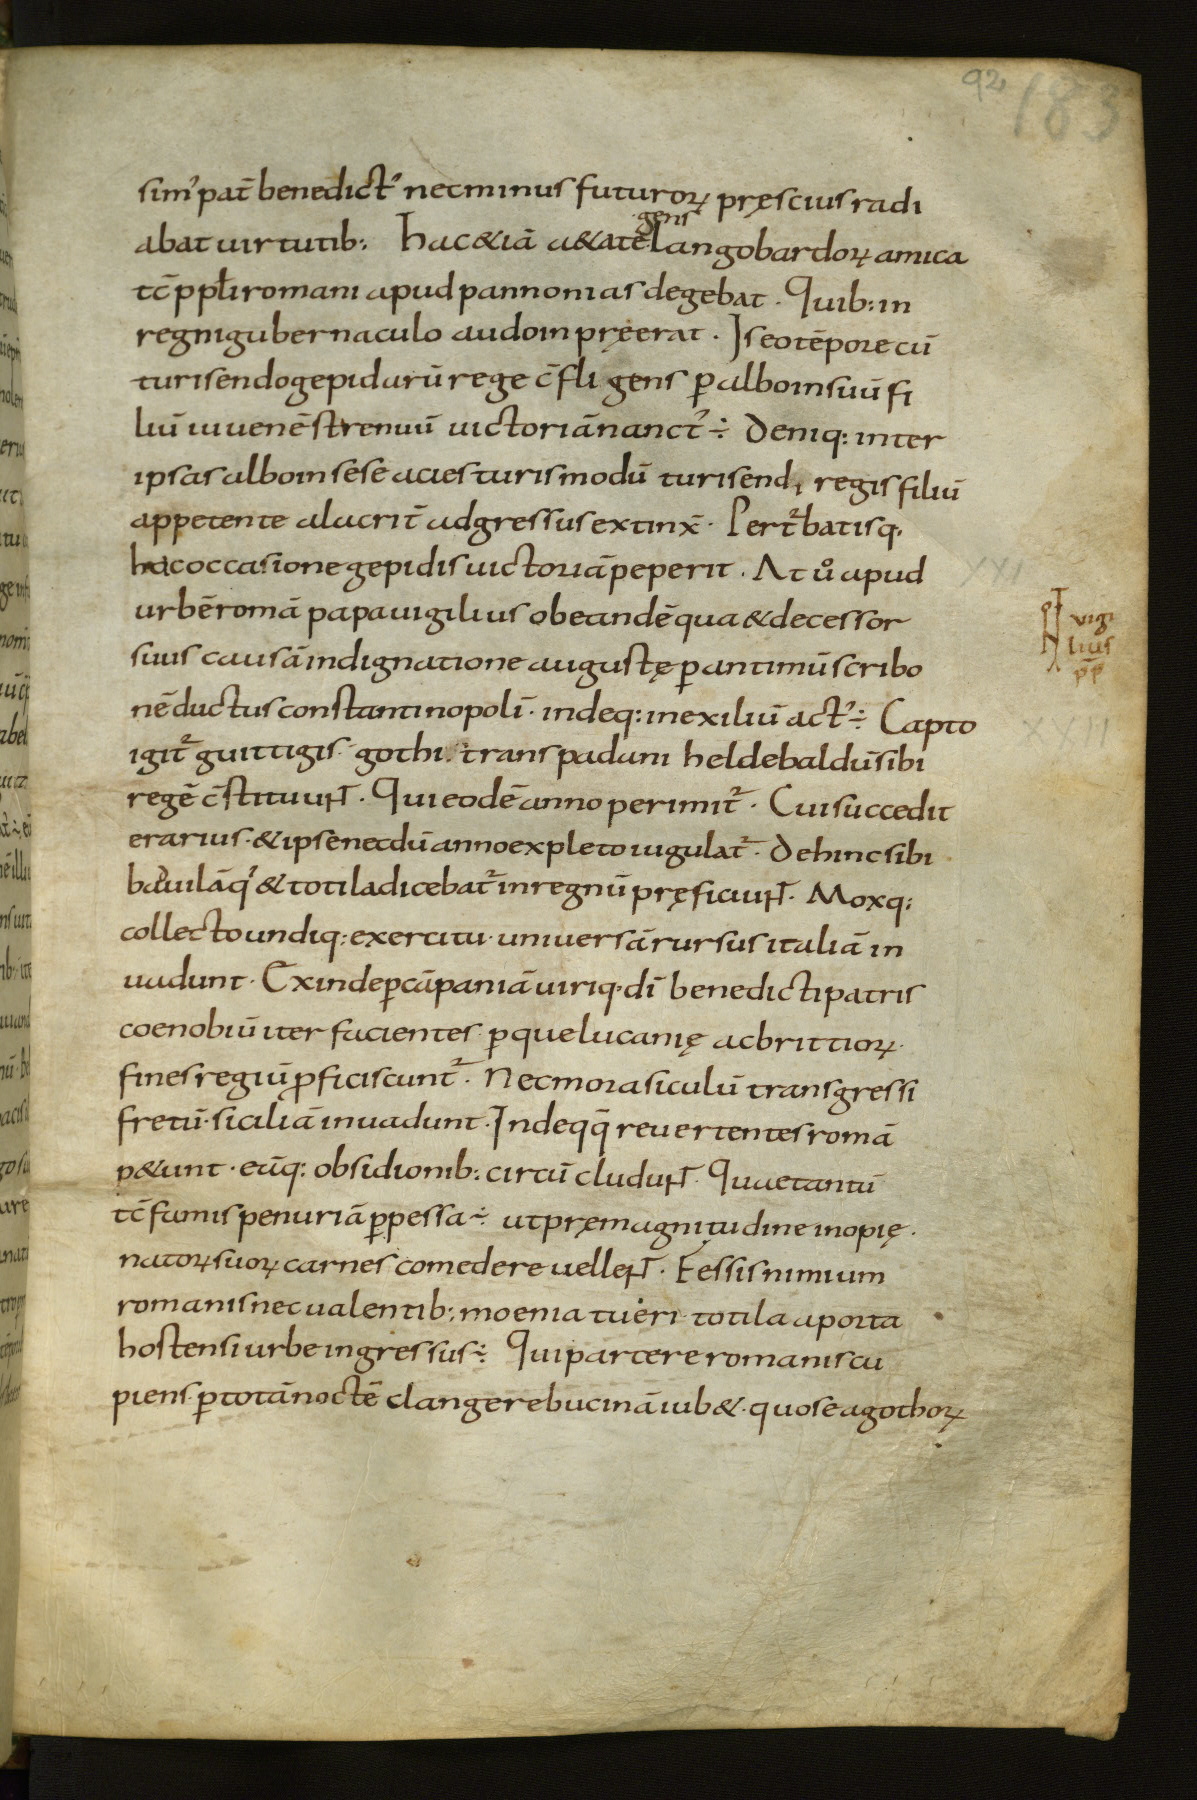 92 183
sim᾽ pat̄ benedict᾽ nec minus futuroꝝ pręscius radi
abat uirtutib: hac & iā a&ate gens Langobardoꝝ amica
tē ppłi romani apud pannonias degebat. Quib: in
regni gubernaculo audoin pręerat. Is eo tēpore cū
turisendo gepidarū rege cōfli gens ꝑ alboin suū fi
liū iuuenē strenuū uictoriā nanct᾽ ÷ Deniq: inter
ipsas alboin sese acies turismodū turisendi regis filiū
appetente alacrit̄ adgressus extinx̄. Pert̄batisq.
hac occasione gepidis uictoriā peperit. At ů apud
urbē romā papa uigilius ob eandē qua & decessor
suus causā indignatione augustę ꝑ antimū scribo
nē ductus constantinopolī. indeq: in exiliū act᾽ ÷ Capto
igit̄ guittigis. gothi transpadani heldebaldū sibi
regē c̄stituuNT. Qui eodē anno perimit̄. Cui succedit
erarius. & ipse necdū anno expleto iugulat̄. Dehinc sibi
baduilā q᾽ & totila dicebat̄ in regnū pręficiuNT. Moxq:
collecto undiq: exercitu. uniuersā rursus italiā in
uadunt. Exinde ꝑ cāpaniā uiriq. dī benedicti patris
coenobiū iter facientes. ꝑque lucanię ac brittioꝝ.
fines regiū ꝓficiscunt̄. Nec mora siculū transgressi
fretū. siciliā inuadunt. Indeqq̄ reuertentes romā
p&unt. eāq: obsidionib: circū cluduNT. Quae tantū
tē famis penuriā ꝑpessa ÷ ut prę magnitudine inopię.
natoꝝ suoꝝ carnes comedere uelleNT. Fessis nimium
romanis nec ualentib: moenia tueri totila a porta
hostensi urbe ingressus ÷ Qui parcere romanis cu
piens. ꝑ totā noctē clangere bucinā iub&. quo se a gothoꝝ
XXI
vigi
lius
pp̄
XXII